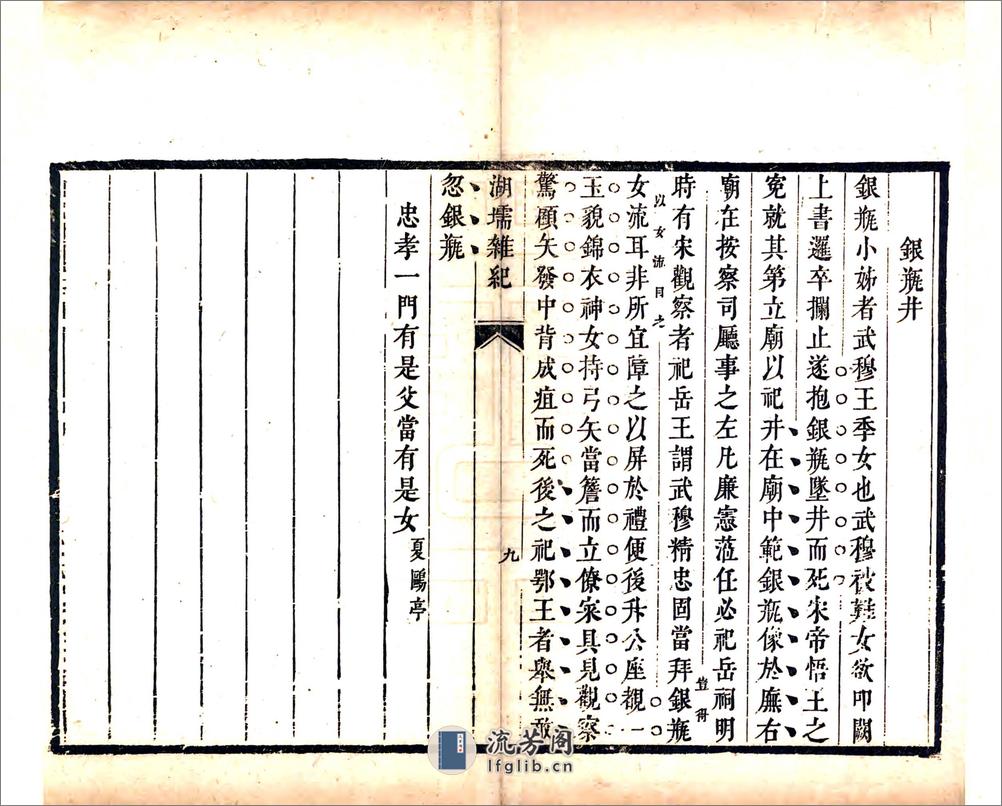 銀瓶井
銀瓶小姊者武穆王季女也武穆被難女欲叩闕
上書邏卒攔止遂抱銀瓶墜井而死宋帝悟王之
寃就其第立廟以祀井在廟中範銀瓶像於廡右
廟在按察司廳事之左凡廉憲蒞任必祀岳祠明
時有宋觀察者祀岳王謂武穆精忠固當拜銀瓶
豈得
以女流目之
女流耳非所宜障之以屏於禮便後升公座覩一
玉貌錦衣神女持弓矢當簷而立僚寀具見觀察
驚顧矢發中背成疽而死後之祀鄂王者舉無敢
湖壖雜紀
九
忽銀瓶
忠孝一門有是父當有是女
夏鷗亭
流芳阁
lfglib.cn